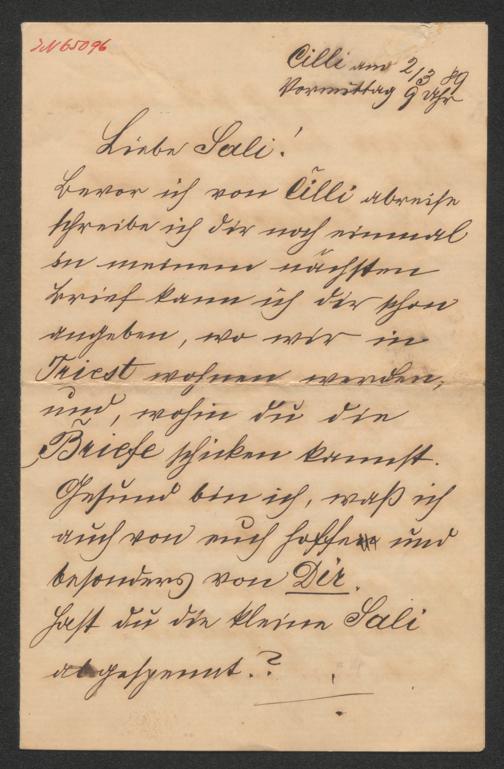 IN 65096
Cilli am 2/3 89
Vormittag 9 Uhr
Liebe Sali!
Bevor ich von Cilli abreise
schreibe ich dir noch einmal
in meinem nächsten
Brief kann ich dir schon
angeben, wo wir in
Triest wohnen werden,
und, wohin du die
Briefe schicken kannst.
Gesund bin ich, waß ich
auch von euch hoffe und
besonders von Dir.
Hast du die kleine Sali
abgespennt.?